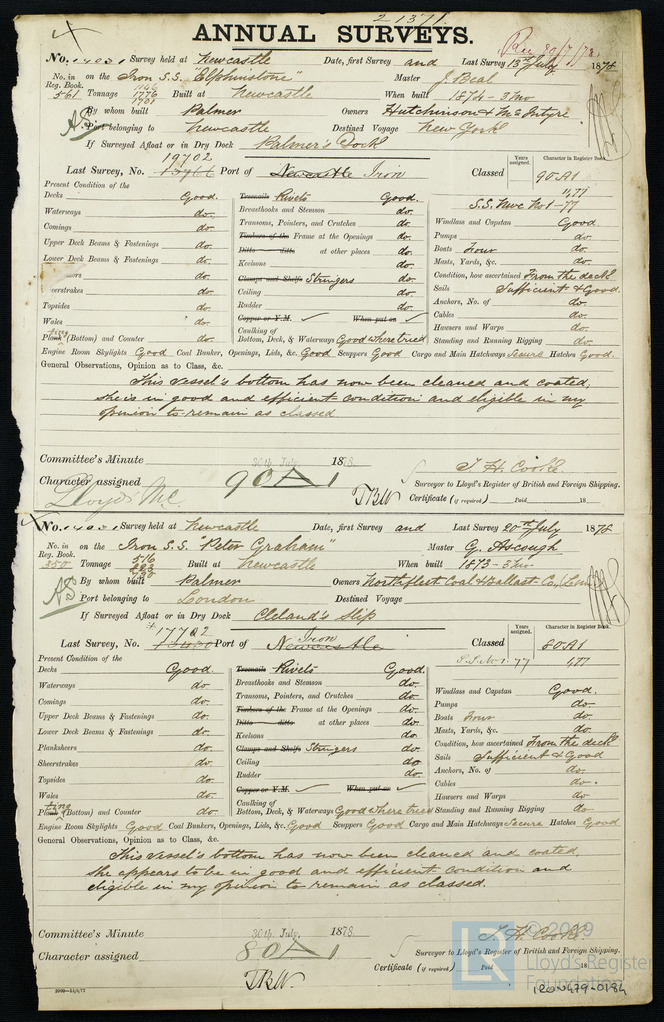 21371
ANNUAL SURVEYS.
Rec 29/7/78
No. Survey held at Newcastle Date, first Survey and Last Survey 13th July 1878
No. in Reg. Book. 561 on the Iron S.S. "Elphinstone" Master J. Beal
Tonnage Built at Newcastle When built 1874-3mo
By whom built Palmer Owners Hutchinson & McIntyre
Port belonging to Newcastle Destined Voyage New York
If Surveyed Afloat or in Dry Dock Palmer's Dock
19702
Last Survey, No. Port of Newcastle Iron Classed Years assigned. Character in Register Book. 90A1
4,77
S.S. Nwc No1-77
Present Condition of the
Decks Good. Treenails Rivets Good.
Waterways do. Breasthooks and Stemson do. Windlass and Capstan Good
Comings do. Transoms, Pointers, and Crutches do. Pumps do.
Upper Deck Beams & Fastenings do. Timbers of the Frame at the Openings do. Boats Four do.
Lower Deck Beams & Fastenings do. Ditto ditto at other places do. Masts, Yards, &c. do.
Keelsons do. Condition, how ascertained From the deck
do. Clamps and Shelfs Stringers do. Sails Sufficient & Good.
eerstrakes do. Ceiling do. Anchors, No. of do.
Topsides do. Rudder do. Cables do.
Wales do. Copper or Y.M. ✓ When put on ✓ Hawsers and Warps do.
Plating (Bottom) and Counter do. Caulking of Bottom, Deck, & Waterways Good where tried Standing and Running Rigging do.
Engine Room Skylights Good Coal Bunker, Openings, Lids, &c. Good Scuppers Good Cargo and Main Hatchways Secure Hatches Good.
General Observations, Opinion as to Class, &c.
This vessel's bottom has now been cleaned and coated,
she is in good and efficient condition and eligible in my
opinion to remain as classed
Committee's Minute 30th July 1878.
Character assigned 90A1
T. H. Cooke.
Surveyor to Lloyd's Register of British and Foreign Shipping.
Lloyd's MC
TBW
Certificate (if required) Paid 18
No. Survey held at Newcastle Date, first Survey and Last Survey 20th July 1878
No. in Reg. Book. 350 on the Iron S.S. "Peter Graham" Master G. Ascough
Tonnage Built at Newcastle When built 1873-3mo
By whom built Palmer Owners Northfleet Coal & Ballast Co., Lim
Port belonging to London Destined Voyage
If Surveyed Afloat or in Dry Dock Cleland's Slip
17702
Last Survey, No. Port of Newcastle Iron Classed Years assigned. Character in Register Book. 80A1
4,77
Present Condition of the
Decks Good. Treenails Rivets Good.
Waterways do Breasthooks and Stemson do. Windlass and Capstan Good.
Comings do Transoms, Pointers, and Crutches do. Pumps do.
Upper Deck Beams & Fastenings do Timbers of the Frame at the Openings do. Boats Four do.
Lower Deck Beams & Fastenings do Ditto ditto at other places do. Masts, Yards, &c. do.
Planksheers do. Keelsons do. Condition, how ascertained From the deck
Sheerstrakes do. Clamps and Shelfs Stringers do. Sails Sufficient & Good
Topsides do Ceiling do Anchors, No. of do.
Wales do Rudder do. Cables do.
Copper or Y.M. ✓ When put on ✓ Hawsers and Warps do
Plating (Bottom) and Counter do Caulking of Bottom, Deck, & Waterways Good where tried Standing and Running Rigging do
Engine Room Skylights Good Coal Bunkers, Openings, Lids, &c. Good Scuppers Good Cargo and Main Hatchways Secure Hatches Good
General Observations, Opinion as to Class, &c.
This vessel's bottom has now been cleaned and coated,
she appears to be in good and efficient condition and
eligible in my opinion to remain as classed.
Committee's Minute 30th July, 1878.
Character assigned 80A1
T. H. Cooke.
Surveyor to Lloyd's Register of British and Foreign Shipping.
TBW
Certificate (if required) Paid 18
© 2019
LR Lloyd's Register Foundation
IRON479-0184